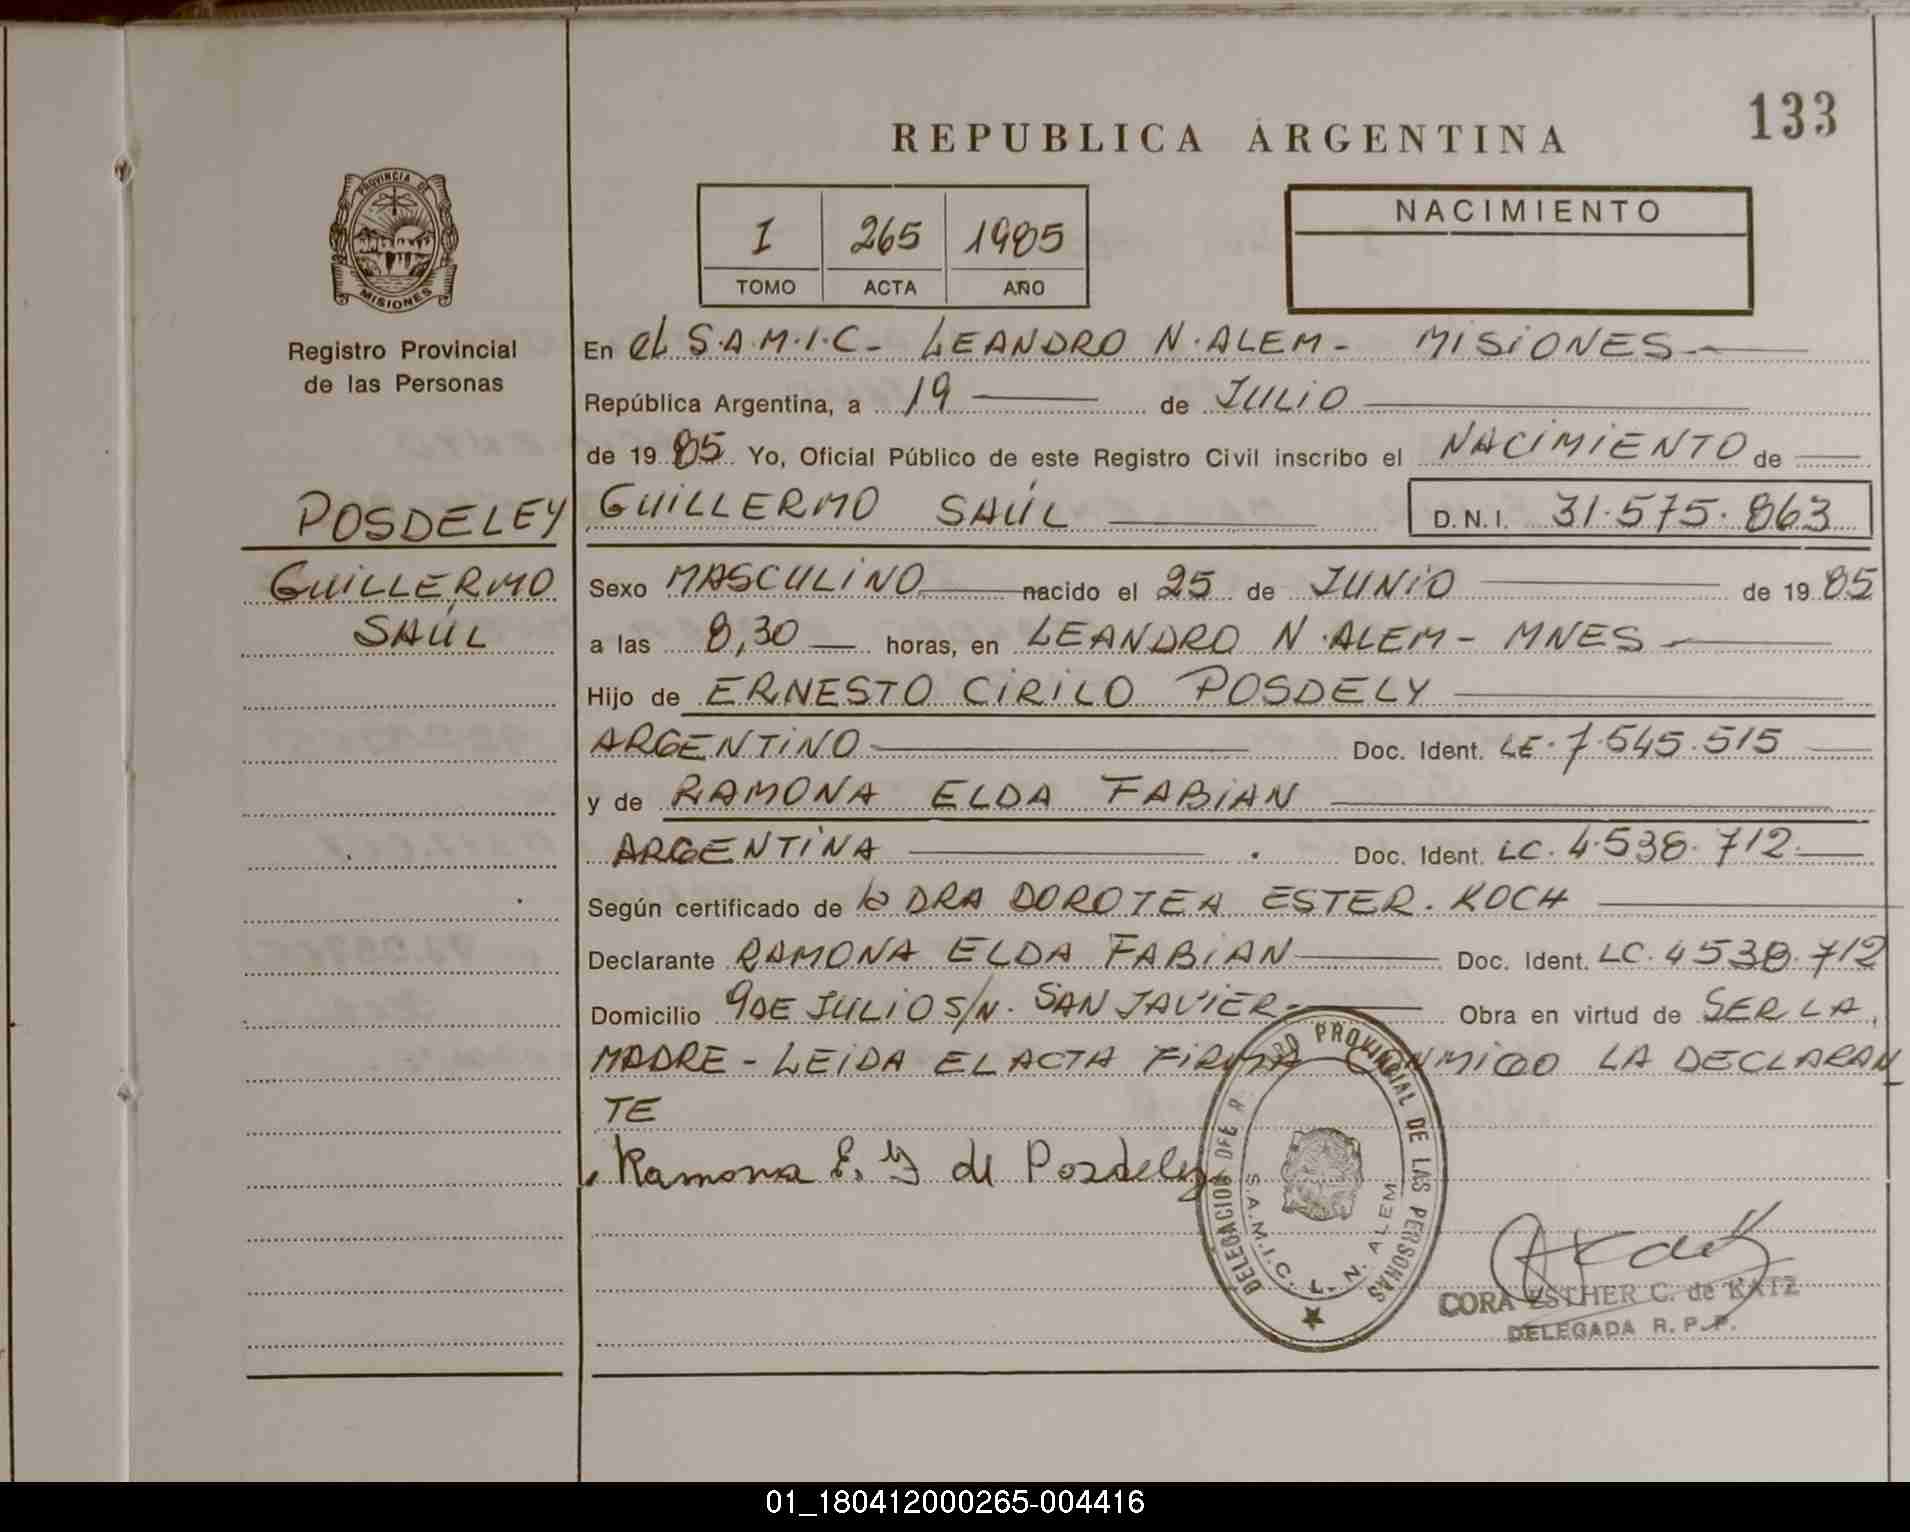 133
REPUBLICA ARGENTINA
PROVINCIA DE
MISIONES
Registro Provincial
de las Personas
I 265 1985
TOMO ACTA AÑO
NACIMIENTO
En el S.A.M.I.C- LEANDRO N. ALEM - MISIONES
República Argentina, a 19 de JULIO
de 19 85 Yo, Oficial Público de este Registro Civil inscribo el NACIMIENTO de
POSDELEY GUILLERMO SAÚL D.N.I. 31.575.863
GUILLERMO
SAÚL
Sexo MASCULINO nacido el 25 de JUNIO de 19 85
a las 8,30 horas, en LEANDRO N. ALEM - MNES
Hijo de ERNESTO CIRILO POSDELY
ARGENTINO Doc. Ident. LE. 7.545.515
y de RAMONA ELDA FABIAN
ARGENTINA Doc. Ident. LC. 4.538.712
Según certificado de la DRA DOROTEA ESTER. KOCH
Declarante RAMONA ELDA FABIAN Doc. Ident. LC. 4538.712
Domicilio 9 DE JULIO S/N. SAN JAVIER- Obra en virtud de SER LA
MADRE - LEIDA EL ACTA FIRMA CONMIGO LA DECLARAN
TE
Ramona E. de Posdeley
DELEGACION DEL R PROVINCIAL DE LAS PERSONAS
S.A.M.I.C. L. N. ALEM
CORA ESTHER C. de KATZ
DELEGADA R. P. P.
01_180412000265-004416